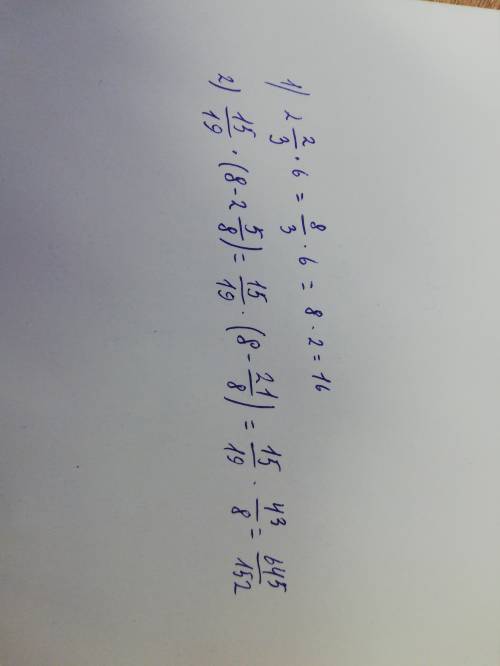 1) 2 2/3 · 6 = 8/3 · 6 = 8 · 2 = 16
2) 15/19 · (8 - 2 5/8) = 15/19 · (8 - 21/8) = 15/19 · 43/8 = 645/152